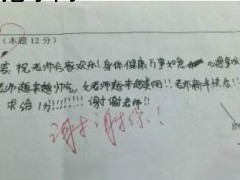 (本题12分)
答:祝老师合家欢乐!身体健康万事如意 心想事成
老师越来越少 女老师越来越美丽!!老师新年快乐!!
求给1分!!!!!! 谢谢老师!!
谢谢你!